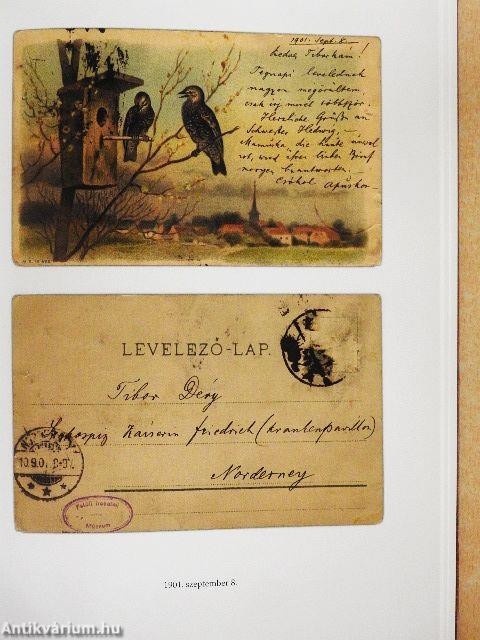 1901. Sept. 8.
Kedves Tiborkám!
Tegnapi levelednek
nagyon megörültem,
csak írj minél többször.
Herzliche Grüße an
Schwester Hedwig. —
Mamuska, die heute
rot, wird Ihren lieben Brief
morgen beantworten.
Csókol Apuskád
LEVELEZŐ-LAP.
Tibor Déry
Kaiserin Friedrich (Krankenpavillon)
Norderney
10.9.0
Petőfi Irodalmi
Múzeum
1901. szeptember 8.
Antikvárium.hu